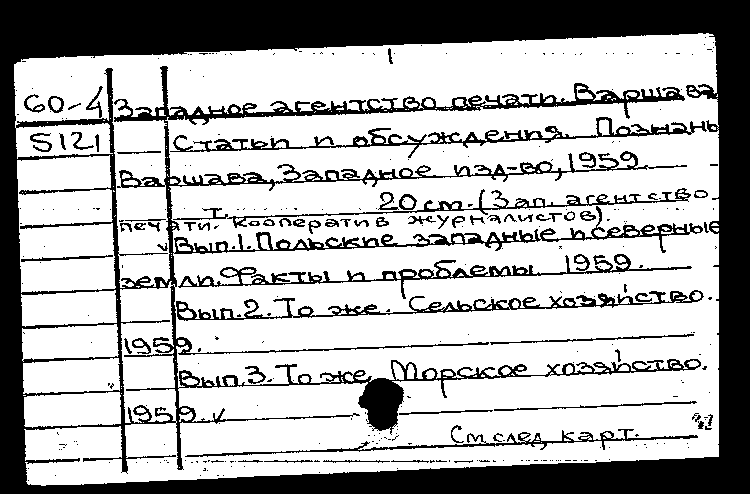 60-4 Западное агентство печати. Варшава
5121 Статьи и обсуждения. Познань
Варшава, Западное изд-во, 1959.
т. 20 см. (Зап. агентство
печати. Кооператив журналистов).
Вып.1. Польские западные и северные
земли. Факты и проблемы 1959.
Вып.2. То же. Сельское хозяйство.
1959.
Вып.3. То же. Морское хозяйство.
1959.
См след. карт.